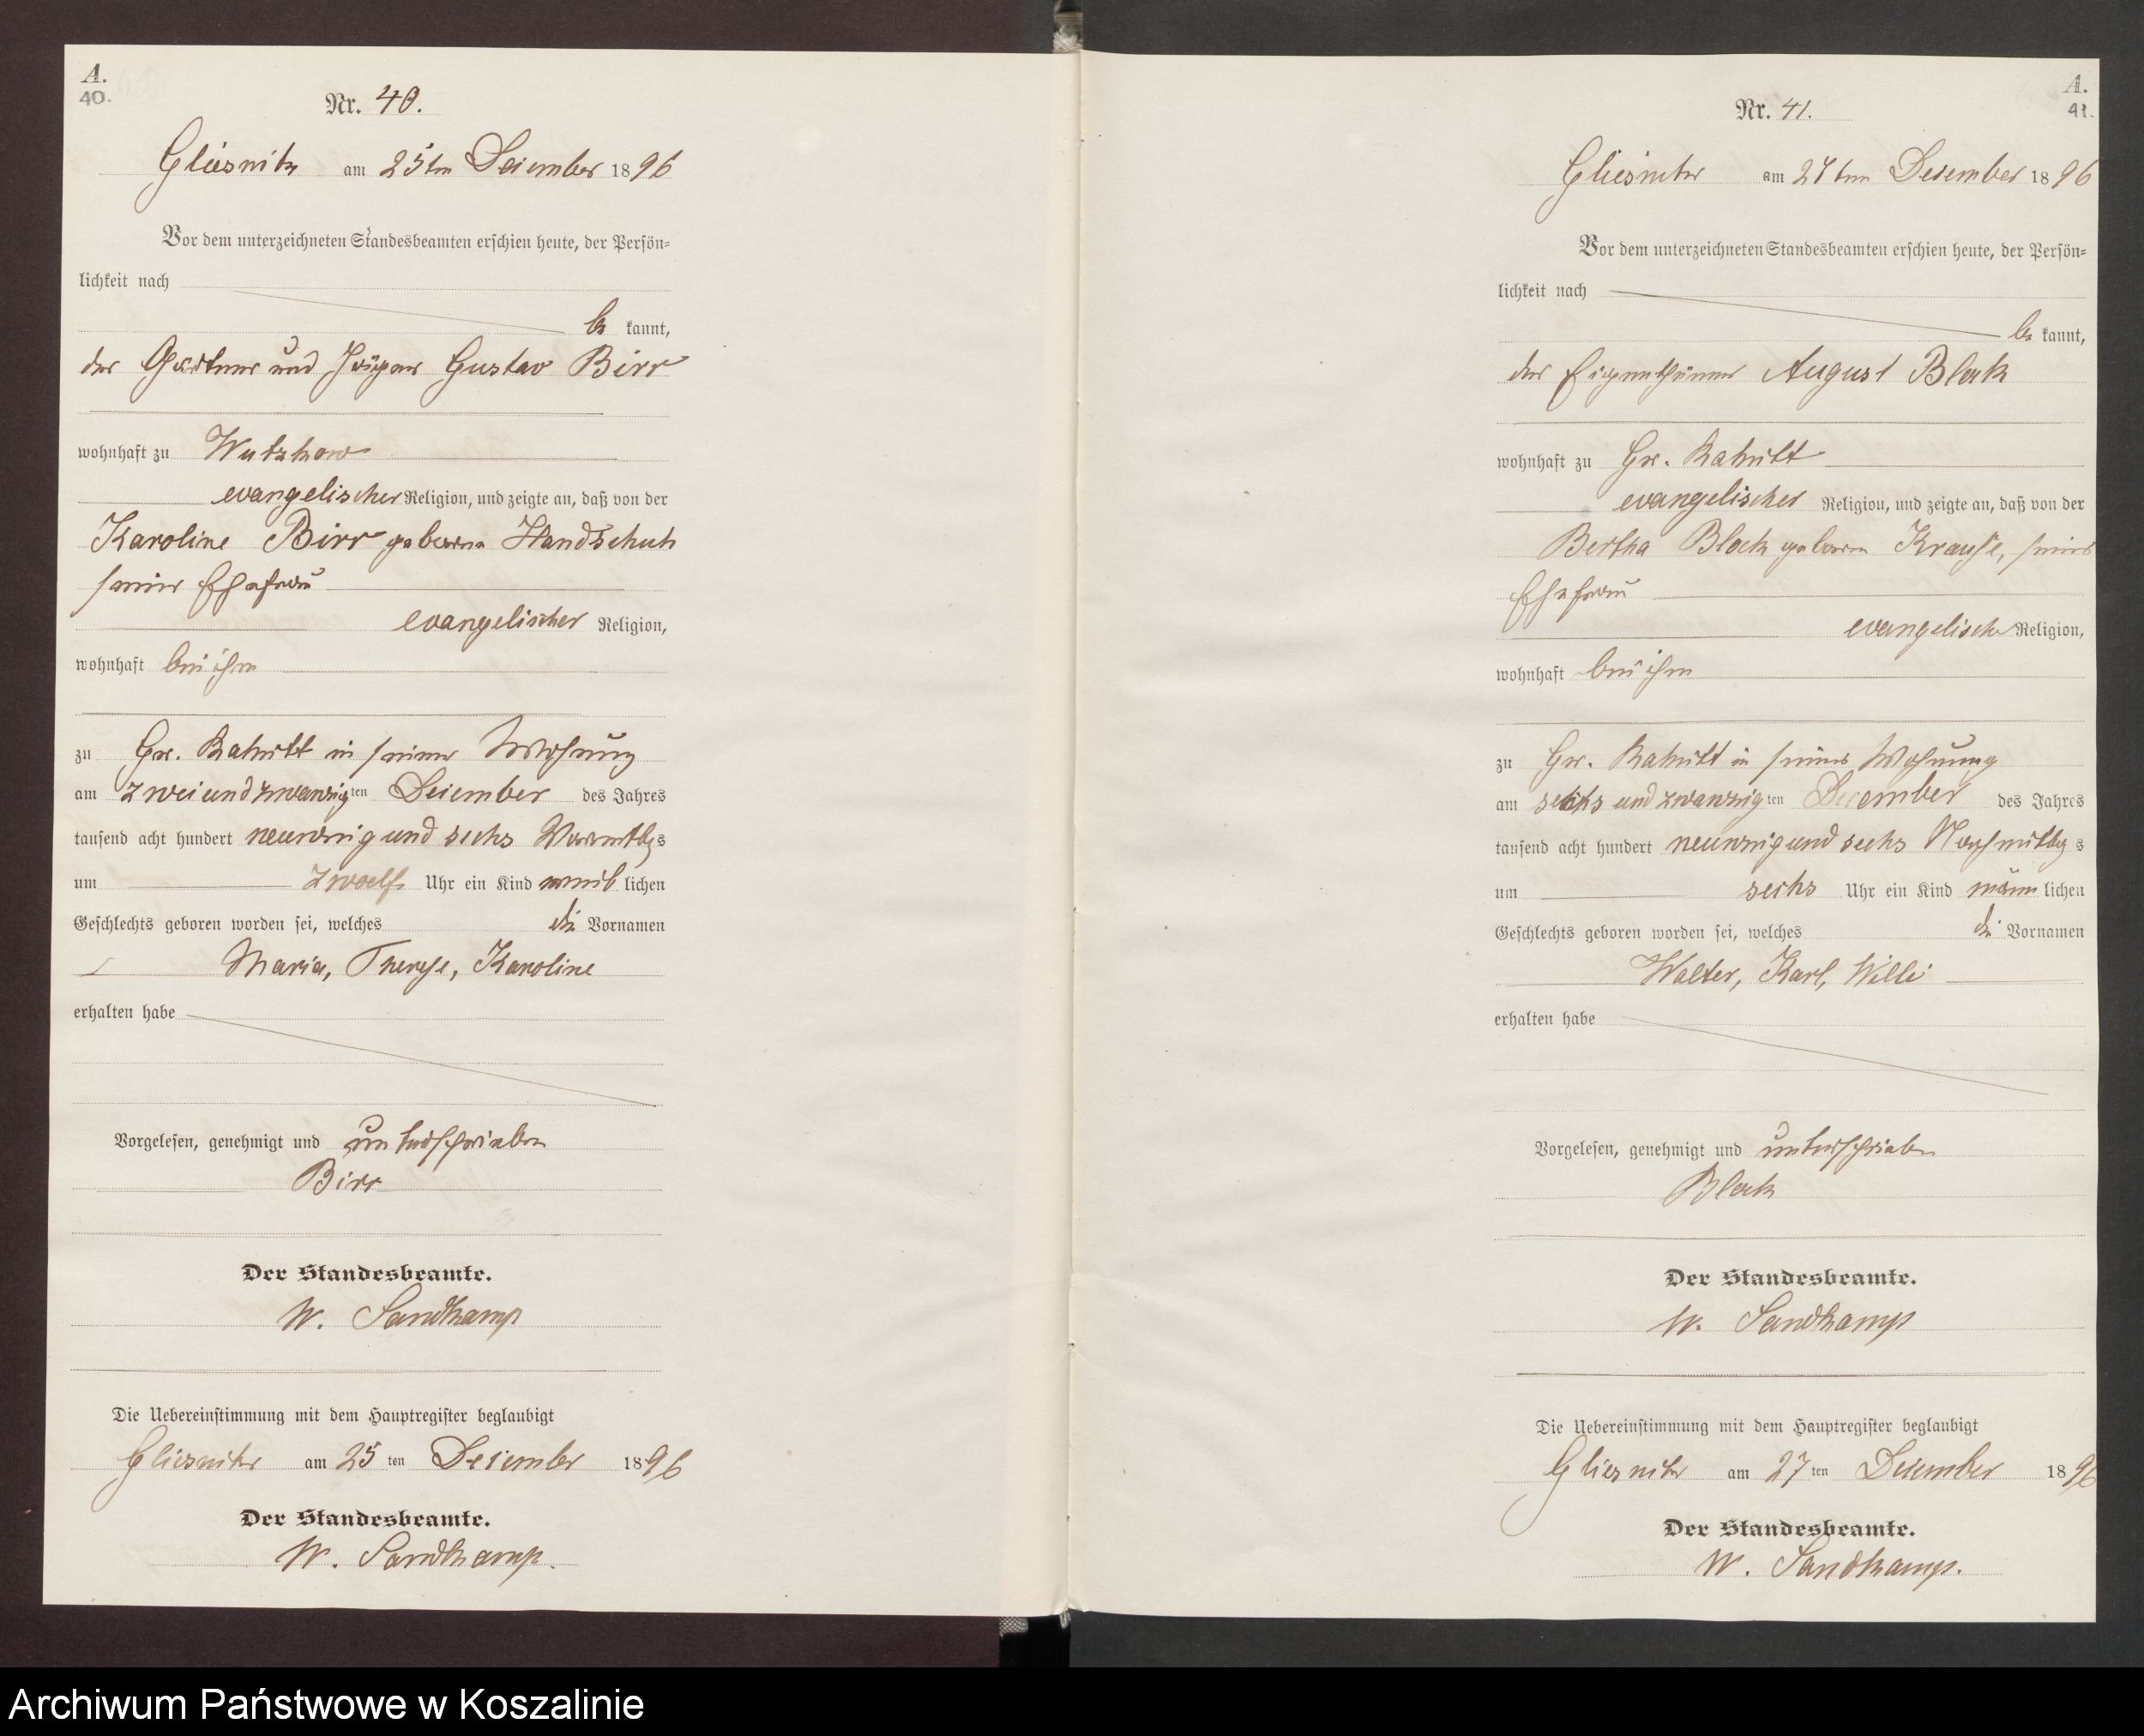 A.
40.
Nr. 40.
Gliesnitz am 25ten Dezember 1896
Vor dem unterzeichneten Standesbeamten erschien heute, der Persön-
lichkeit nach
be kannt,
der Gärtner und Jäger Gustav Birr
wohnhaft zu Wutzkow
evangelischer Religion, und zeigte an, daß von der
Karoline Birr geborene Handschuh
seiner Ehefrau
evangelischer Religion,
wohnhaft bei ihm
zu Gr. Rakitt in seiner Wohnung
am zweiundzwanzig ten Dezember des Jahres
tausend acht hundert neunzig und sechs Vormittags
um zwoelf Uhr ein Kind weib lichen
Geschlechts geboren worden sei, welches die Vornamen
Maria, Therese, Karoline
erhalten habe
Vorgelesen, genehmigt und unterschrieben
Birr
Der Standesbeamte.
W. Sandkamp
Die Uebereinstimmung mit dem Hauptregister beglaubigt
Gliesnitz am 25 ten Dezember 1896
Der Standesbeamte.
W. Sandkamp.
A.
41.
Nr. 41.
Gliesnitz am 27ten Dezember 1896
Vor dem unterzeichneten Standesbeamten erschien heute, der Persön-
lichkeit nach
be kannt,
der Eigenthümer August Block
wohnhaft zu Gr. Rakitt
evangelischer Religion, und zeigte an, daß von der
Bertha Block geboren Krause, seiner
Ehefrau
evangelische Religion,
wohnhaft bei ihm
zu Gr. Rakitt in seiner Wohnung
am sechs und zwanzig ten Dezember des Jahres
tausend acht hundert neunzig und sechs Nachmittags
um sechs Uhr ein Kind männ lichen
Geschlechts geboren worden sei, welches die Vornamen
Walter, Karl, Willi
erhalten habe
Vorgelesen, genehmigt und unterschrieben
Block
Der Standesbeamte.
W. Sandkamp
Die Uebereinstimmung mit dem Hauptregister beglaubigt
Gliesnitz am 27 ten Dezember 1896
Der Standesbeamte.
W. Sandkamp.
Archiwum Państwowe w Koszalinie